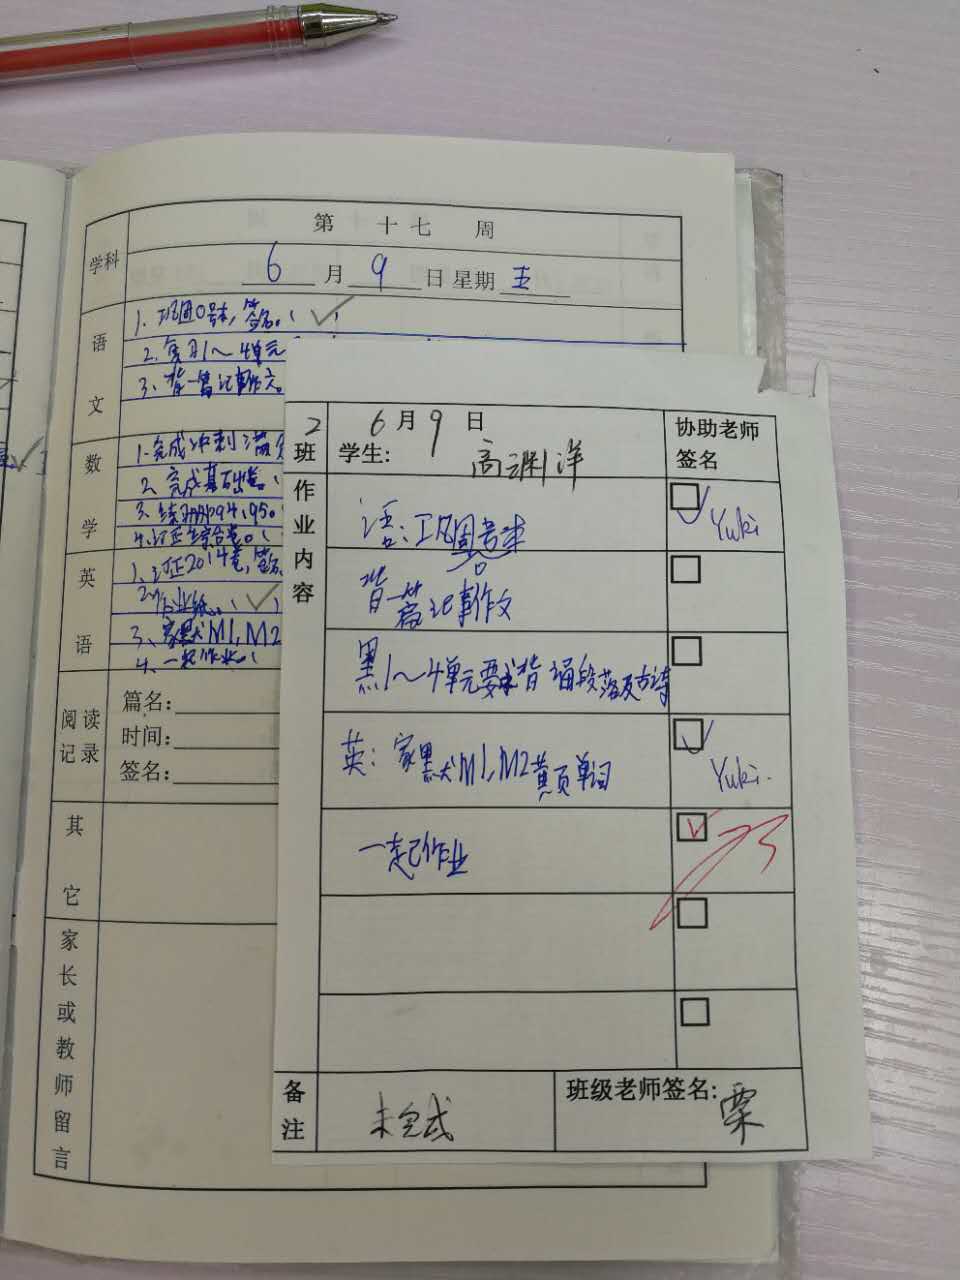 第 十 七 周
学科
6 月 9 日 星期 五
语文
2、复习1~4单元
3、背一篇记事作文。
数学
1.完成冲刺满分
2、完成基础卷。
3、练册P94,95。
英语
1、订正2014卷,签名、
2、作业纸。( )
3、家默M1,M2
4、一起作业。(
阅读记录
篇名:
时间:
签名:
其它
家长或教师留言
2班
6月9日
学生: 高渊洋
协助老师签名
作业内容
Yuki
背一篇记事作文
默1~4单元要求背诵段落及古诗
英:家默M1,M2黄页单词
Yuki.
一起作业
备注
未完成
班级老师签名: 栗